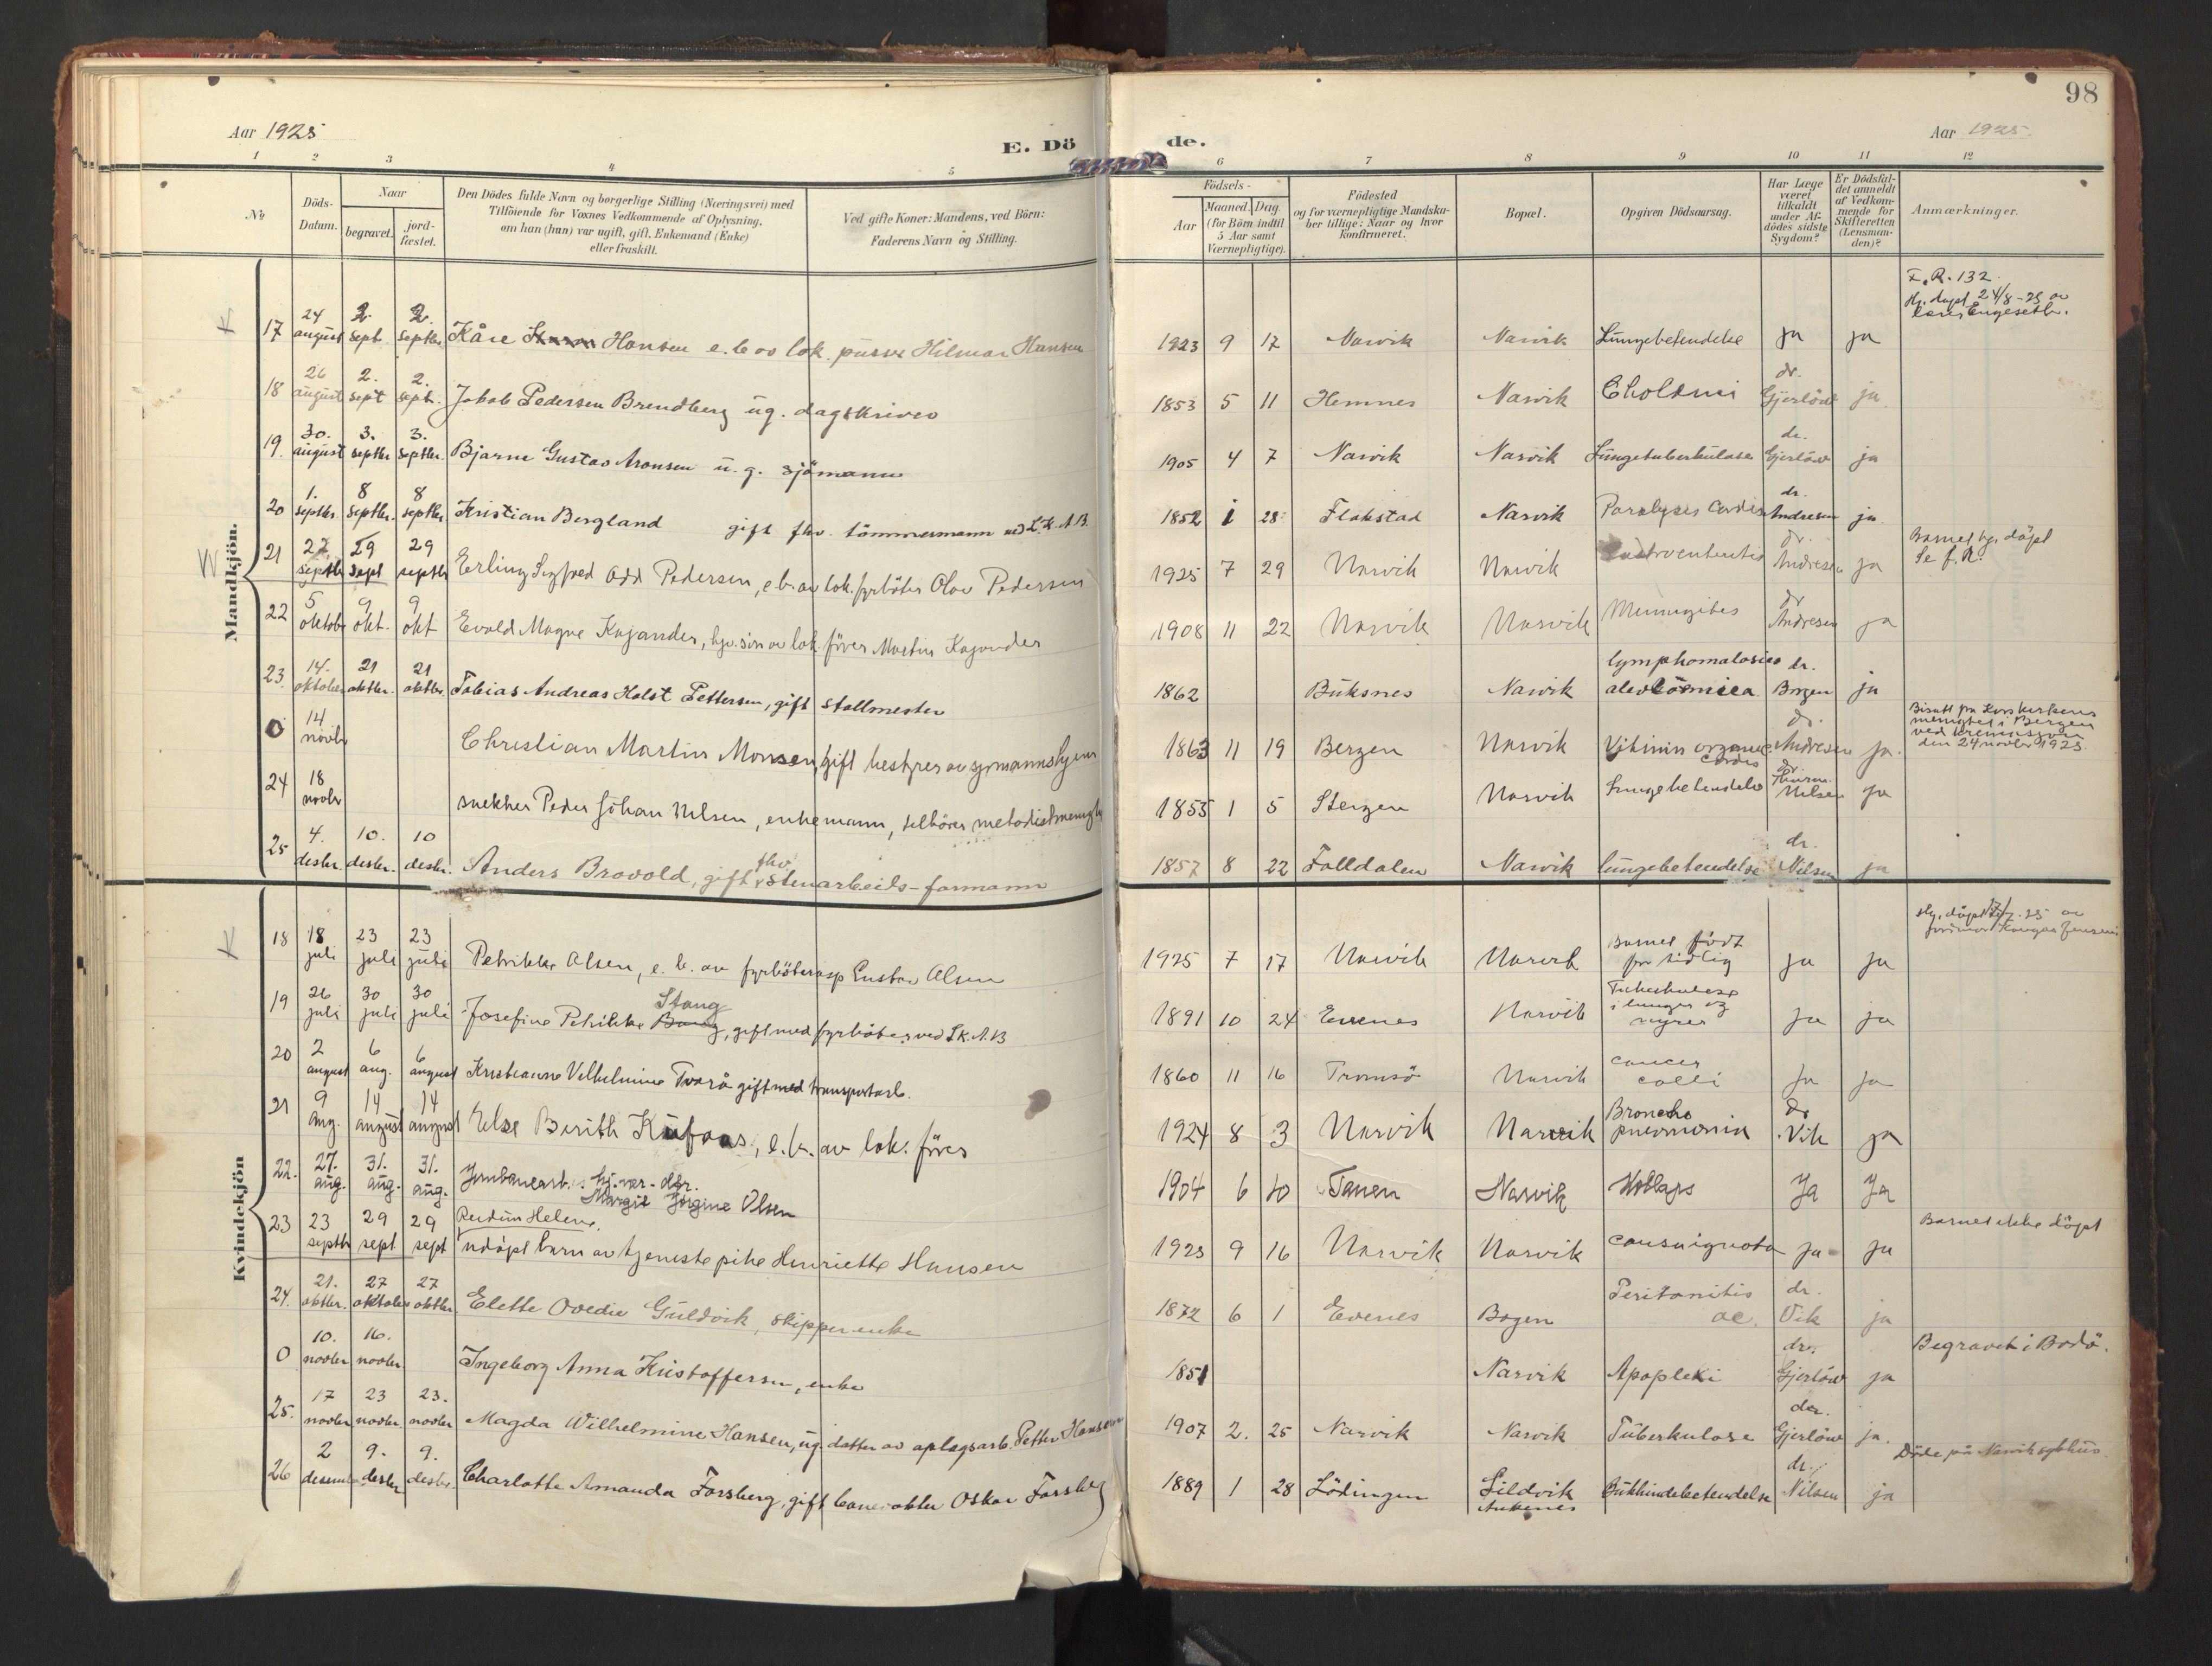 98
Aar 1925
E. Dö de.
Aar 1925
1 2 3 4 5 6 7 8 9 10 11 12
No
Döds-Datum.
Naar
begravet.
jord-fæstet.
Den Dödes fulde Navn og borgerlige Stilling (Næringsvei) med
Tilföiende for Voxnes Vedkommende af Oplysning,
om han (hun) var ugift, gift, Enkemand (Enke)
eller fraskilt.
Ved gifte Koner: Mandens, ved Börn:
Faderens Navn og Stilling.
Födsels-
Aar
Maaned. Dag.
(for Börn indtil
5 Aar samt
Værnepligtige).
Födested
og for værnepligtige Mandska-
ber tillige: Naar og hvor
konfirmeret.
Bopæl.
Opgiven Dödsaarsag.
Har Læge
været
tilkaldt
under Af-
dödes sidste
Sygdom?
Er Dödsfal-
det anmeldt
af Vedkom-
mende for
Skifteretten
(Lensman-
den)?
Anmærkninger.
Mandkjön.
K
17 24 august 2. sept. 2. septbr. Kåre Hansen e. b. av lok. pusser Hilmar Hansen 1923 9 17 Narvik Narvik Lungebetendelse ja ja F. R. 132. Hj. døpt 24/8-23 av
18 26 august 2. sept 2. sept. Jakob Pedersen Brendberg ug. dagskriver 1853 5 11 Hemnes Narvik dr. Gjerlöw ja
19. 30. august 3. septbr 3. septbr. Bjarne Gustav Aronsen u. g. sjömann 1905 4 7 Narvik Narvik Lungetuberkulose dr. Gjerlöw ja
20 1. septbr. 8 septbr. 8 septbr Kristian Bergland gift fhv. tömmermann ved L. K. A. B. 1852 1 28 Flakstad Narvik Paralysis Cordis dr. Andresen ja
21 septbr 29 sept 29 septbr Erling Sigfred Odd Pedersen, e. b. av lok. fyrböter Olav Pedersen 1925 7 29 Narvik Narvik dr. Andresen ja Barnet hj. döpt Se f. R.
22 5 oktobr 9 okt. 9 okt Evald Magne Kajander, hjv. sön av lok. förer Martin Kajander 1908 11 22 Narvik Narvik Meningites dr Andresen ja
23. 14. oktober 21 oktbr. 21 oktbr. Tobias Andreas Holst Pettersen, gift stallmester 1862 Buksnes Narvik dr. Borgen ja
0 14 novbr Christian Martin Monsen, gift bestyrer av sjømannshjem 1863 11 19 Bergen Narvik Vitium organic cordis dr. Andresen ja. Bisatt fra Korskirkens menighet i Bergen ved kremasjon den 24 novbr 1925.
24 18 novbr snekker Peder Johan Nilsen, enkemann, tilhörer metodistmenigh 1855 1 5 Steigen Narvik Lungebetendelse dr. Nilsen ja
25 4. desbr. 10. desbr. 10 desbr. Anders Brovold, gift fhv. stenarbeids-formann 1857 8 22 Folldalen Narvik lungebetendelse dr. Nilsen ja
Kvindekjön
K
18 18 juli 23 juli 23 juli Petrikke Olsen, e. b. av fyrböterasp Gustav Olsen 1925 7 17 Narvik Narvik Barnet födt for tidlig ja ja
19 26 juli 30 juli 30 juli Josefine Petrikke Stang, gift med fyrböter ved L. K. A. B 1891 10 24 Evenes Narvik Tuberkulose i lunger og nyrer ja ja
20 2 august 6 aug. 6 august Kristianne Vilhelmine Tvarå gift med transportarb. 1860 11 16 Tromsö Narvik Cancer colli Ja Ja
21 9 aug. 14 august 14 august Else Berith Kufaas, e. b. av lok. förer 1924 8 3 Narvik Narvik Broncho pneumonia dr. Vik ja
22. 27. aug. 31. aug. 31. aug. Jernbanearb. hj. vær. dtr. Margit Jörgine Olsen 1904 6 10 Tanen Narvik Kollaps Ja Ja
23 23 septbr 29 sept 29 sept Reidun Helene, udöpt barn av tjenestepike Henriette Hansen 1925 9 16 Narvik Narvik causa ignota ja ja Barnet ikke döpt
24. 21. oktbr. 27 oktober 27 oktbr Elette Ovedie Guldvik, skipperenke 1872 6 1 Evenes Bogen Peritonitis ac. dr. Vik ja
0 10. novbr 16. novbr. Ingeborg Anna Kristoffersen, enke 1851 Narvik Apopleksi dr. Gjerlöw ja Begravet i Bodö.
25. 17 novbr 23 novbr. 23. novbr Magda Wilhelmine Hansen, ug. datter av oplagsarb. Petter Hansen 1907 2. 25 Narvik Narvik Tuberkulose dr. Gjerlöw ja.
26 2 desember 9. desbr 9. desbr. Charlotte Amanda Forsberg, gift Oskar Forsberg 1889 1 28 Lödingen Sildvik Ankenes Bukhindebetendelse dr. Nilsen ja Döde på Narvik sykehus.